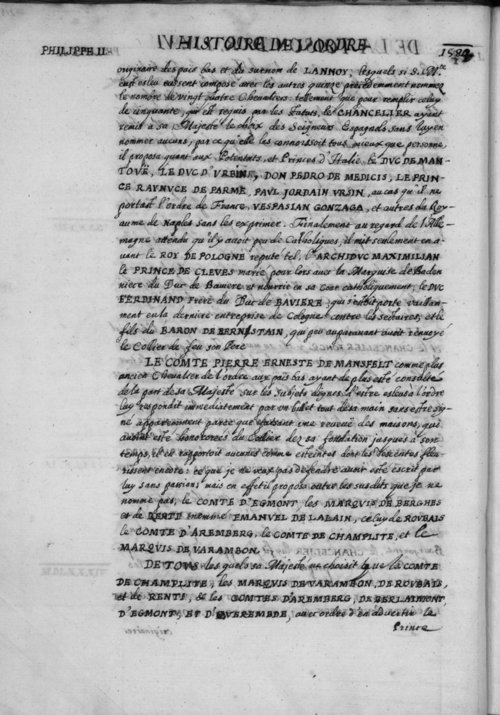 PHILIPPE II.
HISTOIRE DE L'ORDRE
originaire des païs bas et du surnom de LANNOY, lesquels si S. M.te
eust esleu eussent composé avec les autres quinze precedemment nommez
le nombre de vingt quatre Chevaliers: tellement que pour remplir celuy
de cinquante, qui est requis par les statuts, le CHANCELIER ayant
remis à sa Majesté le choix des Seigneurs Espagnols sans luy en
nommer aucuns, par ce qu'elle les connoissoit tous mieux que personne,
il proposa quant aux Potentats, et Princes d'Italie, le DVC DE MAN-
TOVE, LE DVC D'VRBINE, DON PEDRO DE MEDICIS, LE PRIN-
CE RAYNVCE DE PARME, PAVL JORDAIN VRSIN, au cas qu'il ne
portast l'ordre de France, VESPASIAN GONZAGA, et autres du Roy-
aume de Naples sans les exprimer. Finalement au regard de l'Alle-
magne attendu qu'il y avoit peu de Catholiques, il mit seulement en a-
vant le ROY DE POLOGNE reputé tel, l'ARCHIDVC MAXIMILIAN
le PRINCE DE CLEVES marié pour lors avec la Marquise de Baden
niece du Duc de Baviere et nourrie en sa Cour catholiquement, le DVC
FERDINAND Frere du Duc de BAVIERE qui s'estoit porté vaillam-
ment en la derniere entreprise de Cologne contre les sectaires, et le
fils du BARON DE BERNESTAIN, qui peu auparavant avoit renvoyé
le Collier de feu son Pere
LE COMTE PIERRE ERNESTE DE MANSFELT comme plus
ancien Chevalier de l'ordre aux païs bas ayant de plus esté consulté
de la part de sa Majesté sur les subjets dignes d'estre esleus à l'ordre
luy respondit immediatement par un billet tout de sa main sans estre sig-
né apparemment parce que faisant une reveue des maisons, qui
avoient esté honnorées du Collier dez sa fondation jusques à son
temps, il en rapportoit aucunes comme esteintes dont les descentes fleu-
rissent encore: ce que je ne veux pas defendre avoir esté escrit par
luy sans passion; mais en effet il proposa outre les susdits que je ne
nomme pas, le COMTE D'EGMONT, les MARQVIS DE BERGHES
et de RENTI nommé EMANVEL DE LALAIN, celuy de ROVBAIS
le COMTE D'AREMBERG, le COMTE DE CHAMPLITE, et le
MARQVIS DE VARAMBON.
DE TOVS lesquels sa Majesté ne choisit que la COMTE
DE CHAMPLITE, les MARQVIS DE VARAMBON, DE ROVBAYS,
et de RENTI, & les COMTES D'AREMBERG, DE BERLAIMONT,
D'EGMONT, ET D'EVEREMEDE, avec ordre d'en advertir le
Prince